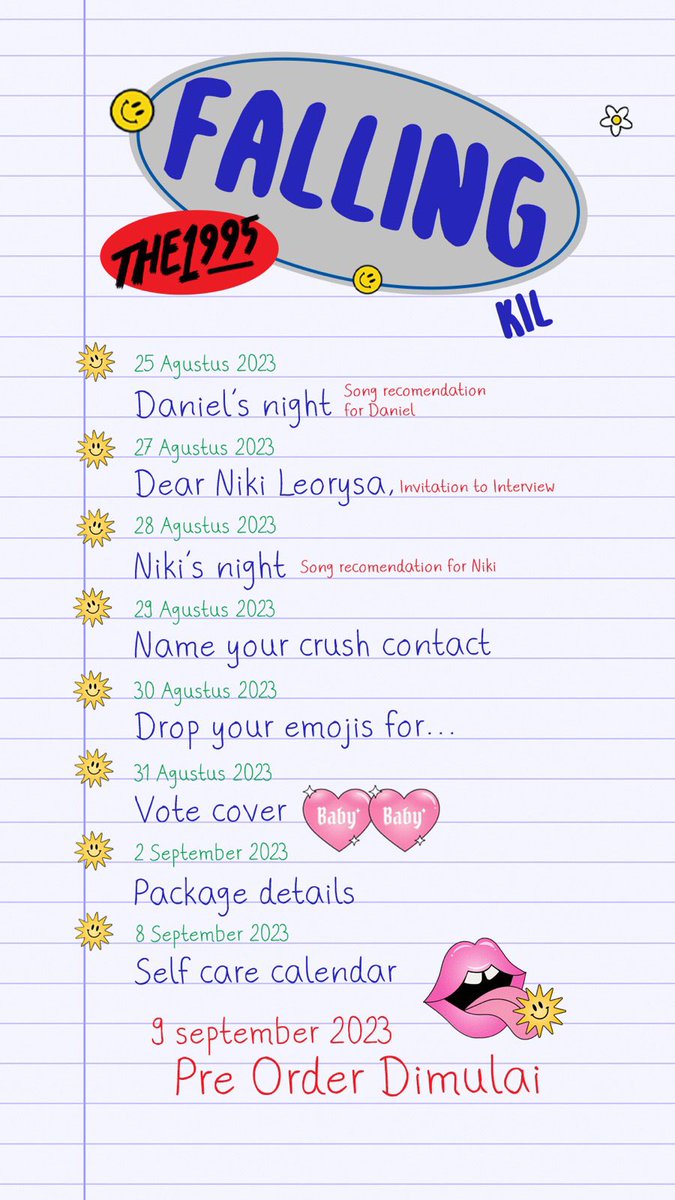 FALLING
THE1995
KIL
25 Agustus 2023
Daniel's night Song recomendation
for Daniel
27 Agustus 2023
Dear Niki Leorysa, Invitation to Interview
28 Agustus 2023
Niki's night Song recomendation for Niki
29 Agustus 2023
Name your crush contact
30 Agustus 2023
Drop your emojis for...
31 Agustus 2023
Vote cover Baby Baby
2 September 2023
Package details
8 September 2023
Self care calendar
9 september 2023
Pre Order Dimulai